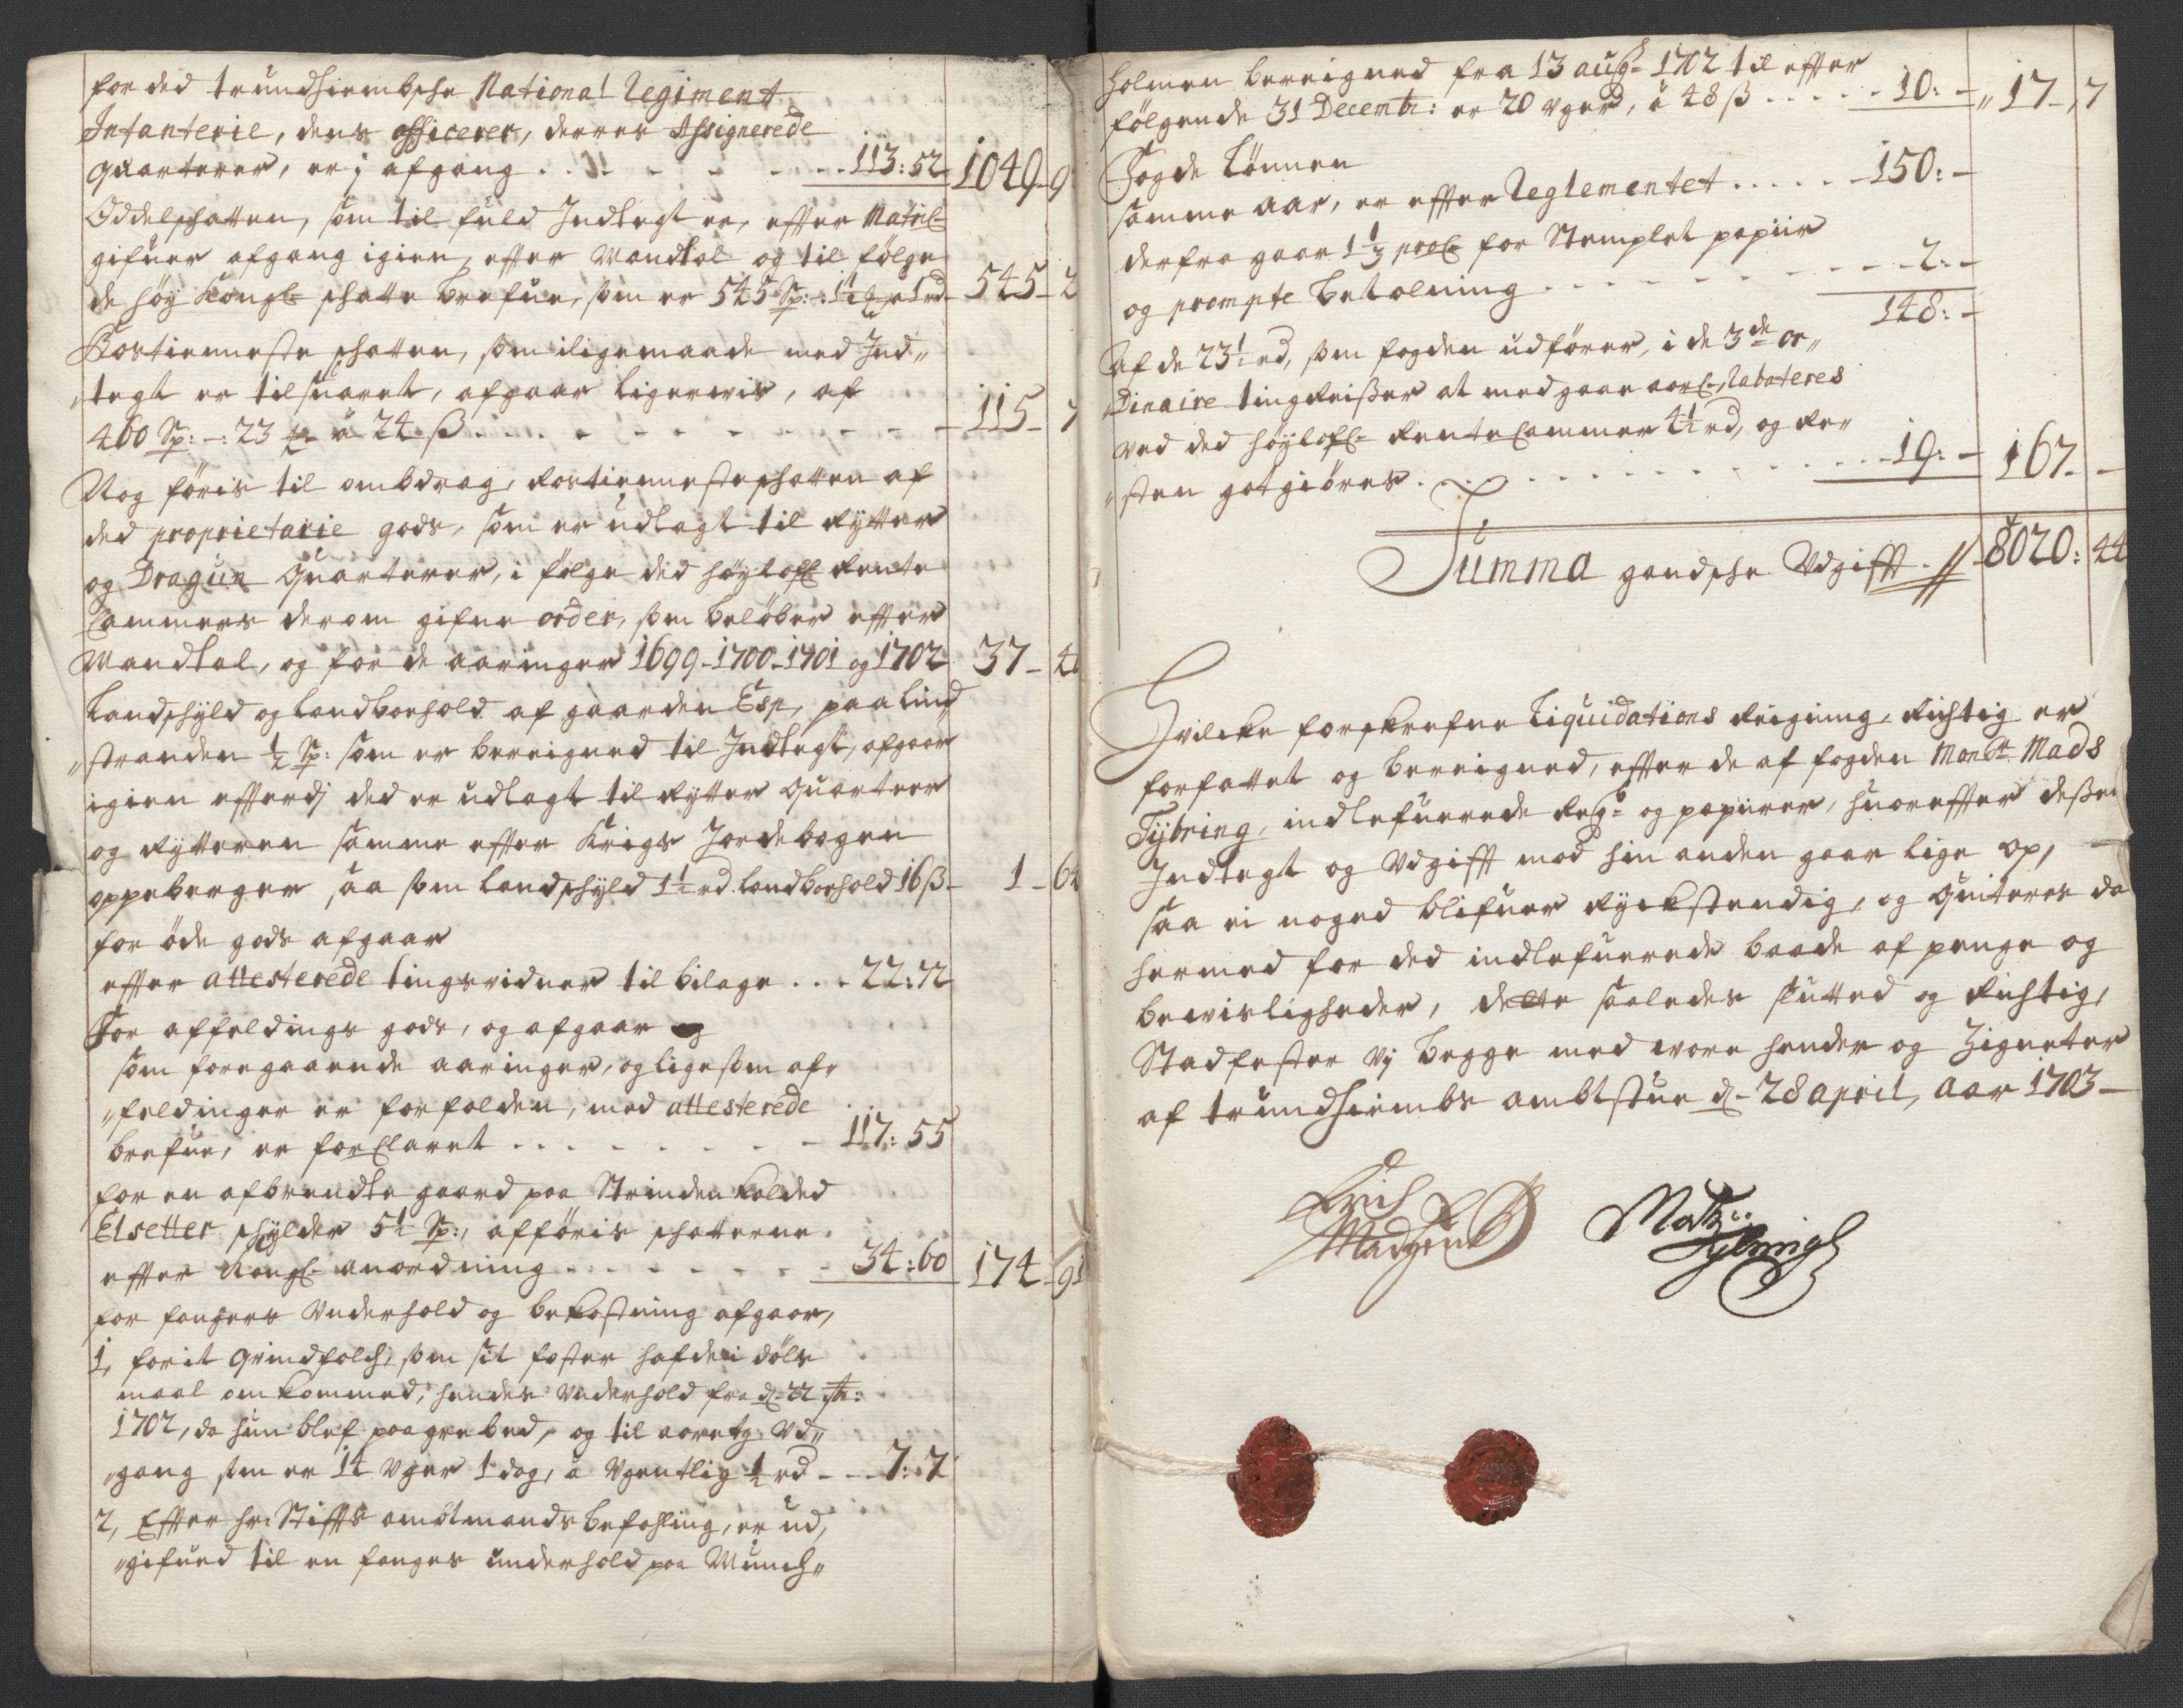 for ded trundhiembsche National Regiment
Infanterie, dens officerer, derres Assignerede
quarterer, er j afgang . . . . . . 113:52 1049-9
Oddelschatten, som til fuld Indtegt er, efter Matric=
gifuer afgang igien, efter Mandtal og til følge
de høy Kongl= schatte brefue, som er 545 Sp: 545-2
Rostienneste schatten, som iligemaade med Ind„
„tegt er tilsuaret, afgaar ligerwis, af
460 Sp: -: 23 à 24 ß . . . . . . 115-7
Nog føris til ombdrag, rostiennesteschatten af
ded proprietarie gods, som er udlagt til Rytter
og Dragun Quarterer, i følge ded høylofl= Rente
Cammers derom gifne order, som beløber efter
Mandtal, og for de aaringer 1699-1700-1701 og 1702 37-4
Landschyld og landboehold af gaarden Esp, paa Lind
„stranden ½ Sp: som er bereigned til Indtegt, afgaar
igien efterdj ded er udlagt til Rytter Quarteer
og Rytteren samme efter Krigs Jordebogen
oppeberger saa som landschyld 1½ rd landboehold 16 ß - 1-64
for øde gods afgaar
efter attesterede tingsvidner til bilage . . . 22:72
For affeldings gods, og afgaar
som foregaaende aaringer, og ligesom af„
„feldinger er forfalden, med attesterede
brefue, er forClaret . . . . . . 117:55
for en afbrendte gaard paa Strinden kalded
Elsetter schylder 5½ Sp:, afføris schatterne
efter Kongl= anordning . . . . . . 34:60 174-91
for fangers Underhold og bekostning afgaar,
1, for it qvindfolch, som sit foster hafde i døls
maal omkommed, hendes Underhold fra d= 22
1702, da hun blef paagrebed, og til aaretz Ud„
„gang som er 14 Uger 1 dag, à Ugentlig ½ rd - - 7:7
2, Efter hr: Stiffts ambtmands befahling, er ud„
„gifued til en fanges underhold paa Munch„
holmen bereigned fra 13 aug= 1702 til efter
følgende 31 Decembr: er 20 Uger, à 48 ß . . . . 10:- „17-„7
Fogde Lønnen
samme aar, er efter Reglementet . . . . . 150:-
derfra gaar 1⅓ proC= for Stemplet papiir
og prompte betalning . . . . . . 2:-
148:-
Af de 23½ rd, som fogden udfører, i de 3de or„
„Dinaire tingReisser at medgaar aarl=, Rabateres
ved ded høylofl= RenteCammer 4½ rd, og Re„
„sten gotgiøres . . . . . . 19:- 167-
Summa gandsche Udgifft . // 8020:44
Hvilcke forskrefne Liquidations Reigning, Richtig er
forfattet og bereigned, efter de af fogden Monsr Mads
Tybring, indlefuerede Regs= og papirer, huorefter desses
Indtegt og Udgifft mod hin anden gaar lige op,
saa ei noged blifuer Ryckstendig, og Quiteres da
hermed for ded indlefuerede baade af penge og
bewisligheder, dette saaledes slutted og Richtig,
Stadfester Vj begge med wore hender og Zigneter
af trundhiembs ambtstue d= 28 april, aar 1703-
Erich
Madzen
Matz:
Tybringh